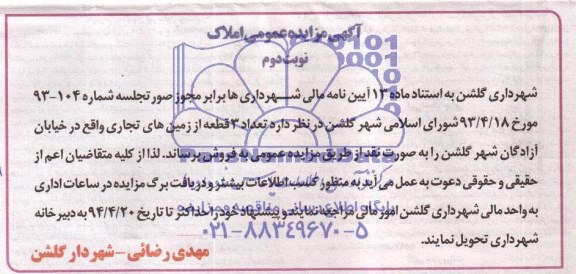 آگهی مزایده عمومی املاک
نوبت دوم
شهرداری گلشن به استناد ماده ۱۳ آیین نامه مالی شهرداری ها برابر مجوز صورتجلسه شماره ۱۰۴-۹۳
مورخ ۹۳/۴/۱۸ شورای اسلامی شهر گلشن در نظر دارد تعداد ۲ قطعه از زمین های تجاری واقع در خیابان
آزادگان شهر گلشن را به صورت نقد از طریق مزایده عمومی به فروش برساند. لذا از کلیه متقاضیان اعم از
حقیقی و حقوقی دعوت به عمل می آید به منظور کسب اطلاعات بیشتر و دریافت برگ مزایده در ساعات اداری
به واحد مالی شهرداری گلشن امور مالی مراجعه نمایند و پیشنهاد خود را حداکثر تا تاریخ ۹۴/۴/۲۰ به دبیرخانه
شهرداری تحویل نمایند.
پایگاه اطلاع رسانی مناقصه و مزایده
۰۲۱-۸۸۳۴۹۶۷۰-۵
مهدی رضائی-شهردار گلشن